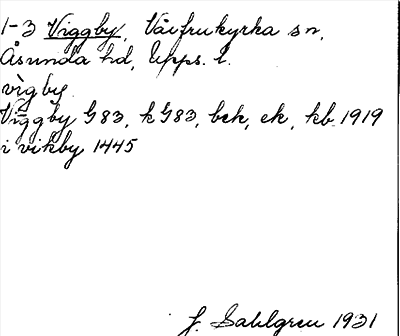 1-3 Viggby, Vårfrukyrka sn,
Åsunda hd, Upps. l.
vìgby
Viggby G 83, k G 83, bek, ek, kb 1919
i vikby 1445
J. Sahlgren 1931